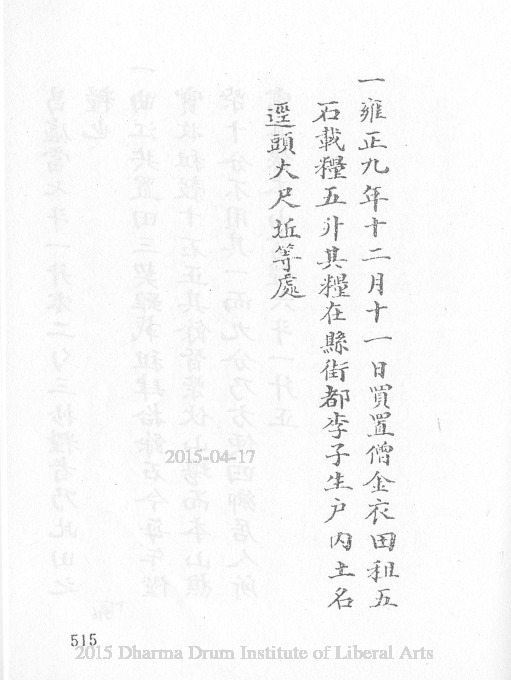 一雍正九年十二月十一日買置僧金衣田租五
石載糧五升其糧在縣街都李子生户內土名
逕頭大尺坵等處
2015-04-17
515
2015 Dharma Drum Institute of Liberal Arts